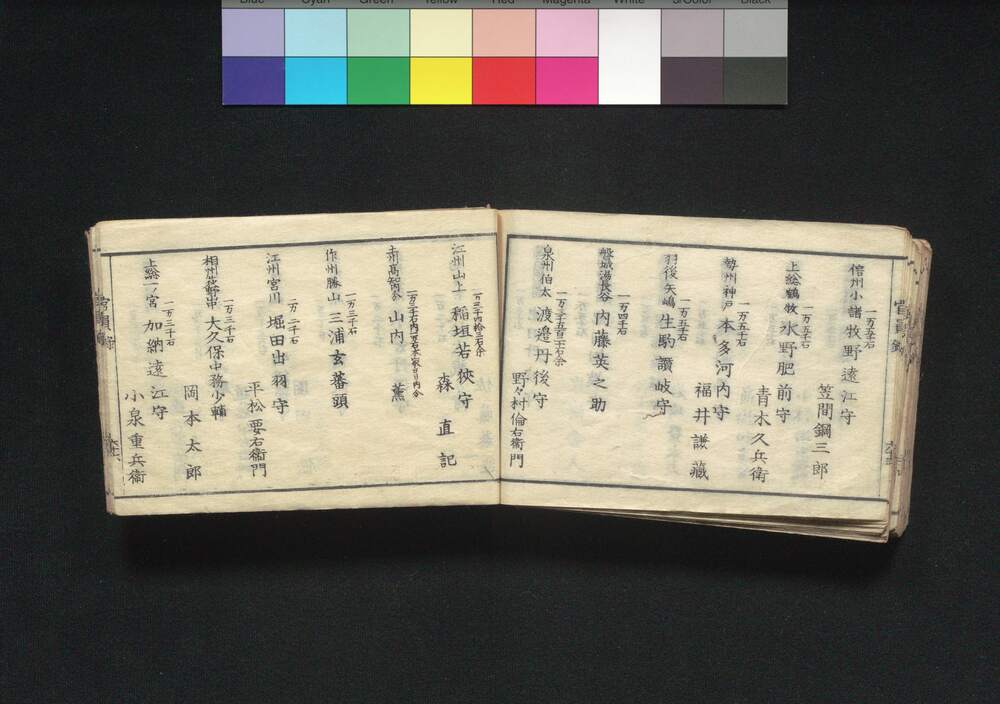 Blue Cyan Green Yellow Red Magenta White 3/Color Black
信州小諸
一万五千石
牧野遠江守
笠間鋼三郎
上総鶴牧
一万五千石
水野肥前守
青木久兵衛
勢州神戸
一万五千石
本多河内守
福井謙藏
羽後矢嶋
一万五千石
生駒讃岐守
磐城湯長谷
一万四千石
内藤英之助
泉州伯太
一万三千五百二十石余
渡邉丹後守
野々村倫右衛門
江州山上
稲垣若狹守
森直記
土州高知分
山内薫
作州勝山
一万三千石
三浦玄蕃頭
江州宮川
一万三千石
堀田出羽守
平松要右衛門
相州荻野
一万三千石
大久保中務少輔
岡本太郎
上総一ノ宮
一万三千石
加納遠江守
小泉重兵衛